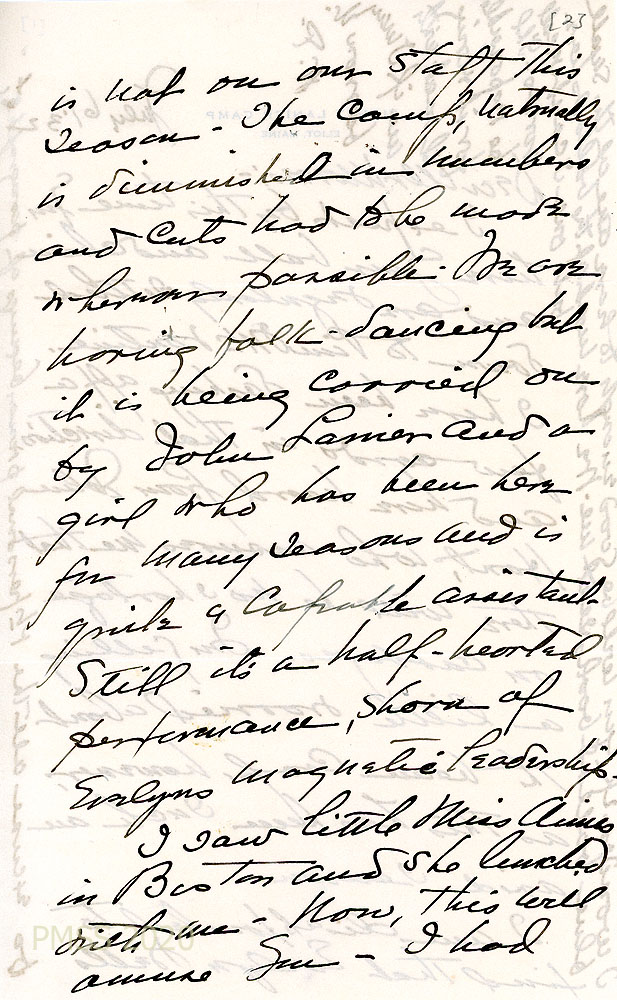 [2]
is not on our staff this
season - The camp, naturally
is diminished in numbers
and cuts had to be made
wherever possible. We are
having folk-dancing but
it is being carried on
by John Lanier and a
girl who has been here
for many seasons and is
quite a capable assistant.
Still it's a half-hearted
performance, shorn of
Evelyns magnetic leadership.
I saw little Miss Aimes
in Boston and she lunched
with me - Now, this will
amuse you - I had